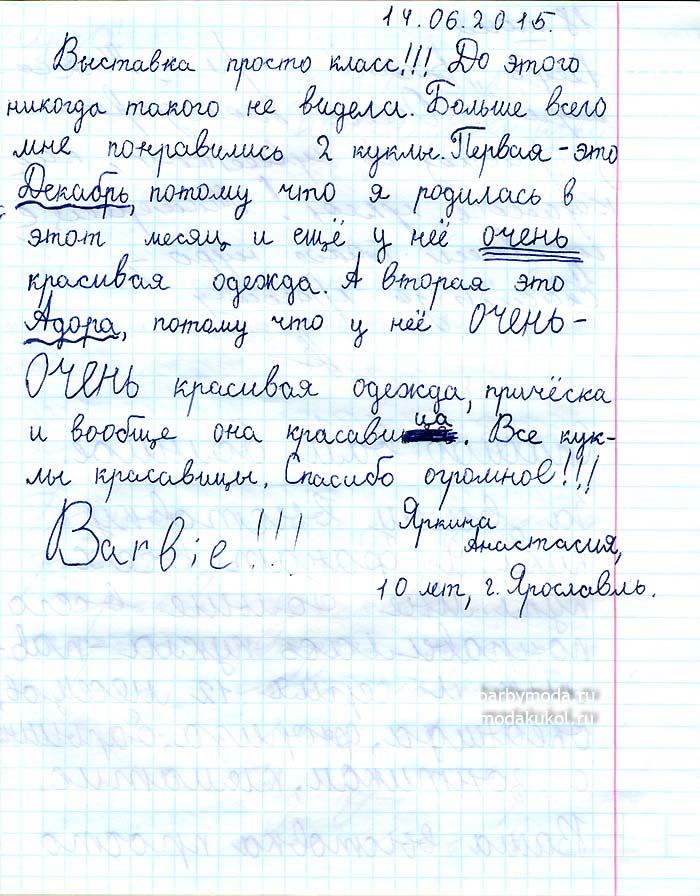 14.06.2015.
Выставка просто класс!!! До этого
никогда такого не видела. Больше всего
мне понравились 2 куклы. Первая - это
Декабрь, потому что я родилась в
этот месяц и ещё у неё очень
красивая одежда. А вторая это
Адора, потому что у неё ОЧЕНЬ-
ОЧЕНЬ красивая одежда, причёска
и вообще она красавица. Все кук-
лы красавицы. Спасибо огромное!!!
Barbie!!!
Яркина
Анастасия,
10 лет, г. Ярославль.
barbymoda.ru
modakukol.ru